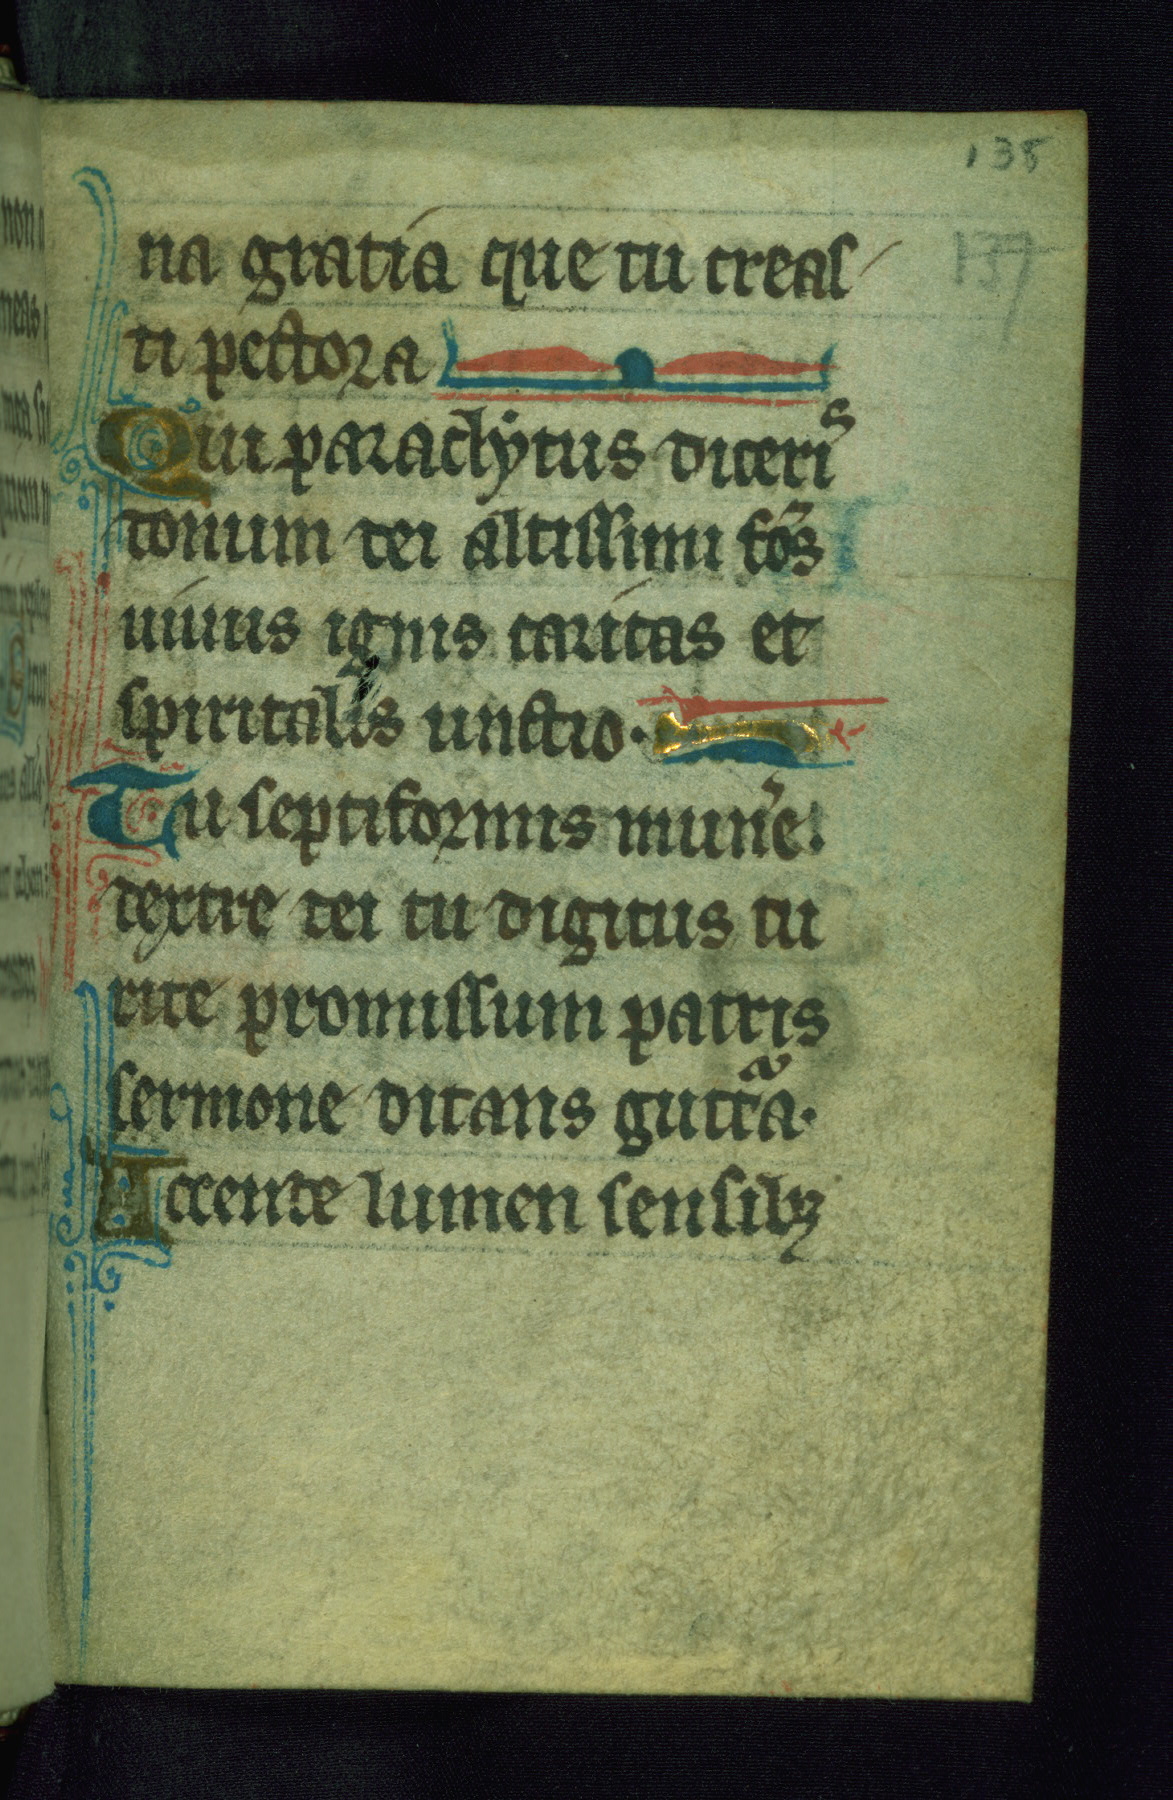 138
137
na gratia que tu creas
ti pectora
Qui paraclytus diceris
donum dei altissimi fōs
uiuus ignis caritas et
spiritalis unctio·
Tu septiformis mun̄e.
dextre dei tu digitus tu
rite promissum patris
sermone ditans gutt̄a·
Accende lumen sensibꝫ